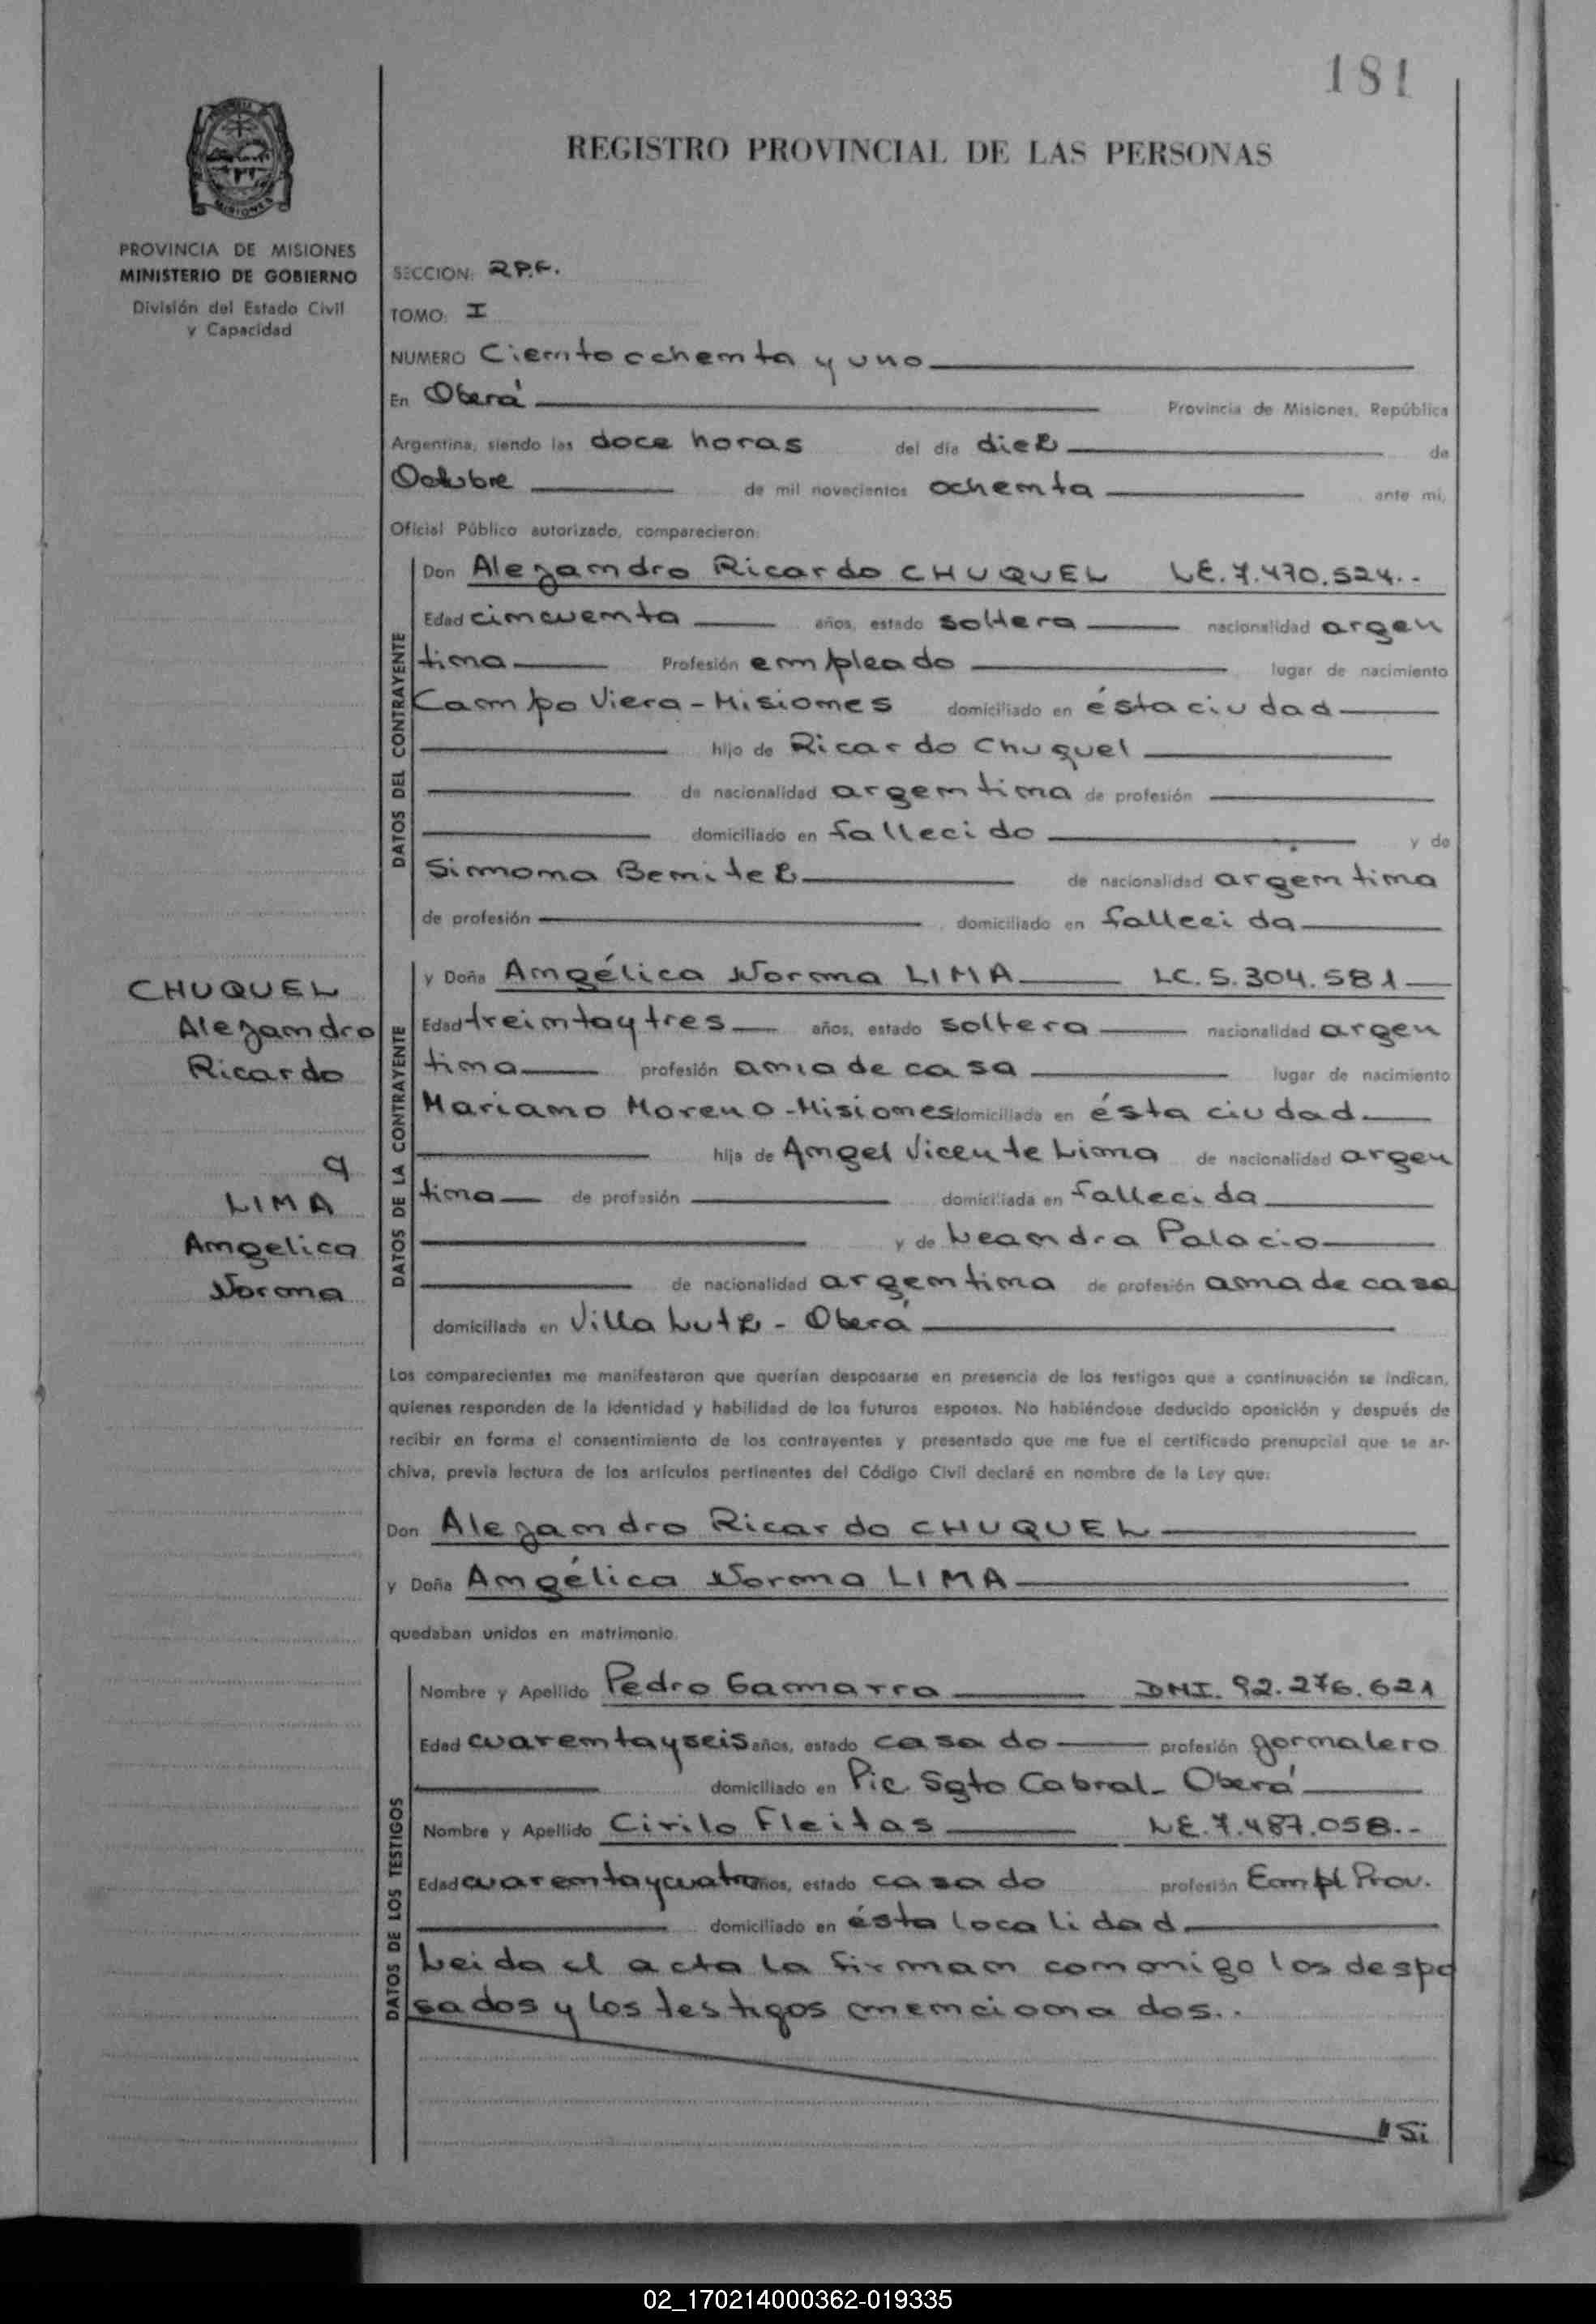 181
REGISTRO PROVINCIAL DE LAS PERSONAS
MISIONES
PROVINCIA DE MISIONES
MINISTERIO DE GOBIERNO
División del Estado Civil
y Capacidad
SECCION: R.P.F.
TOMO: I
NUMERO Ciento ochenta y uno
En Oberá Provincia de Misiones, República
Argentina, siendo las doce horas del día diez de
Octubre de mil novecientos ochenta ante mi,
Oficial Público autorizado, comparecieron:
DATOS DEL CONTRAYENTE
Don Alejandro Ricardo CHUQUEL LE. 7.470.524.-
Edad cincuenta años, estado soltera nacionalidad argen
tina Profesión empleado lugar de nacimiento
Campo Viera - Misiones domiciliado en ésta ciudad
hijo de Ricardo Chuquel
de nacionalidad argentina de profesión
domiciliado en fallecido y de
Simona Benitez de nacionalidad argentina
de profesión domiciliado en fallecida
CHUQUEL
Alejandro
Ricardo
y
LIMA
Angelica
Norma
DATOS DE LA CONTRAYENTE
y Doña Angélica Norma LIMA LC. 5.304.581
Edad treinta y tres años, estado soltera nacionalidad argen
tina profesión ama de casa lugar de nacimiento
Mariano Moreno - Misiones domiciliada en ésta ciudad
hija de Angel Vicente Lima de nacionalidad argen
tina de profesión domiciliada en fallecida
y de Leandra Palacio
de nacionalidad argentina de profesión ama de casa
domiciliada en Villa Lutz - Oberá
Los comparecientes me manifestaron que querían desposarse en presencia de los testigos que a continuación se indican,
quienes responden de la identidad y habilidad de los futuros esposos. No habiéndose deducido oposición y después de
recibir en forma el consentimiento de los contrayentes y presentado que me fue el certificado prenupcial que se ar-
chiva, previa lectura de los artículos pertinentes del Código Civil declaré en nombre de la Ley que:
Don Alejandro Ricardo CHUQUEL
y Doña Angélica Norma LIMA
quedaban unidos en matrimonio.
DATOS DE LOS TESTIGOS
Nombre y Apellido Pedro Gamarra DNI. 92.276.621
Edad cuarenta y seis años, estado casado profesión jornalero
domiciliado en Pic Sgto Cabral - Oberá
Nombre y Apellido Cirilo Fleitas LE. 7.487.058.-
Edad cuarenta y cuatro años, estado casado profesión Empl Prov.
domiciliado en ésta localidad
Leida el acta la firman conmigo los despo
sados y los testigos mencionados..
Si
02_170214000362-019335